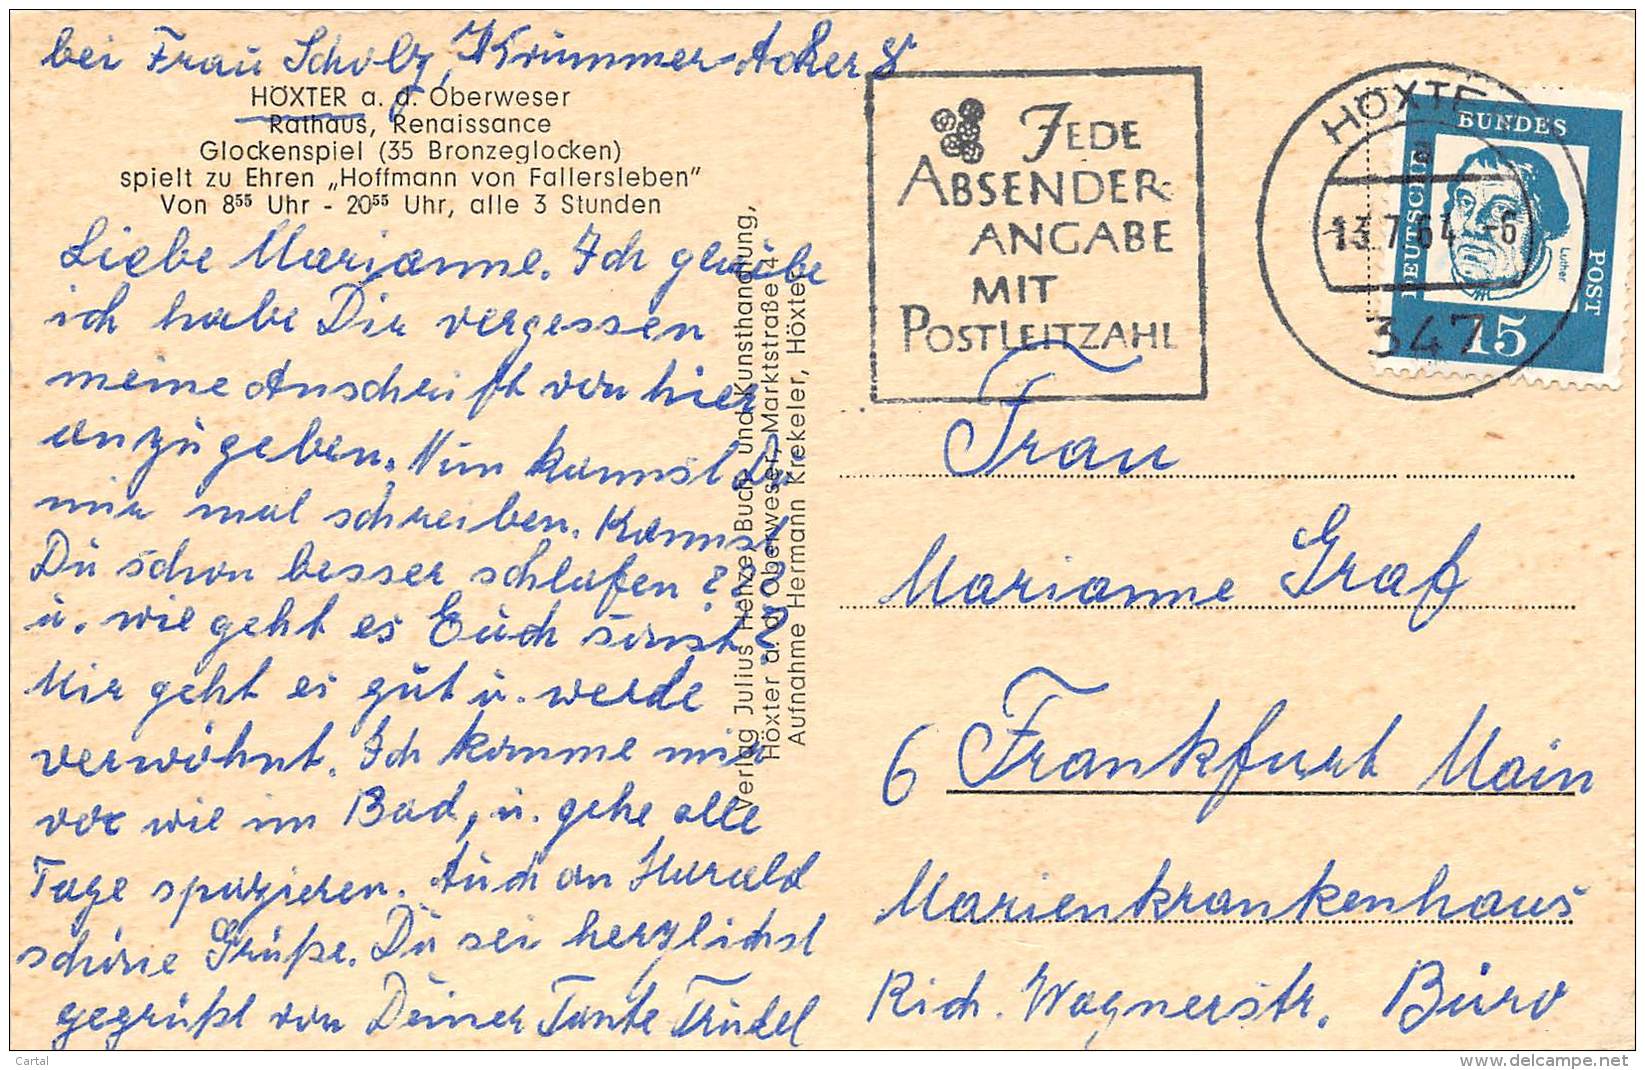 bei Frau Scholz, Krummer-Acker 8
HÖXTER a. d. Oberweser
Rathaus, Renaissance
Glockenspiel (35 Bronzeglocken)
spielt zu Ehren „Hoffmann von Fallersleben"
Von 8⁵⁵ Uhr - 20⁵⁵ Uhr, alle 3 Stunden
Liebe Marianne. Ich glaube
ich habe Dir vergessen
meine Anschrift von hier
anzugeben. Nun kannst Du
mir mal schreiben. Kannst
Du schon besser schlafen???
u. wie geht es Euch sonst?
Mir geht es gut u. werde
verwöhnt. Ich komme mir
vor wie im Bad, u. gehe alle
Tage spazieren. Auch an Harald
schöne Grüße. Du sei herzlichst
gegrüßt von Deiner Tante Trudel
Verlag Julius Henze, Buch- und Kunsthandlung,
Höxter a. d. Oberweser, Marktstraße 4
Aufnahme Hermann Krekeler, Höxter
JEDE
ABSENDER-
ANGABE
MIT
POSTLEITZAHL
HÖXTER
a
13.7.64 -6
347
DEUTSCHE
BUNDES
POST
Luther
15
Frau
Marianne Graf
6 Frankfurt Main
Marienkrankenhaus
Rich. Wagnerstr. Büro
Cartal
delcampe.net